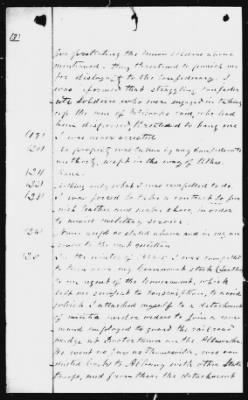 for protecting the Union soldiers above
mentioned. They threatened to punish me
for disloyalty to the Confederacy. I
was informed that straggling Confeder-
ate soldiers who were engaged in taking
off the men of road, who had
been dispersed, threatened to hang me
I was never arrested
No property was taken by any Confederate
authority, except in the way of tithes.
None.
Nothing only what I was compelled to do.
I was forced to take a contract to fur-
nish leather and shoes there, in order
to avoid military service
None except as stated above and in my an-
swer to the next question
In the winter of I was compelled
to turn over my Government stock (leather)
to an agent of the Government, which
left me subject to conscription, to avoid
which I attached myself to a detachment
of militia under orders to join a com-
mand employed to guard the railroad
bridge at on the
We went as far as Thomasville, was or-
dered back to Albany with other State
troops, and from there the detachment